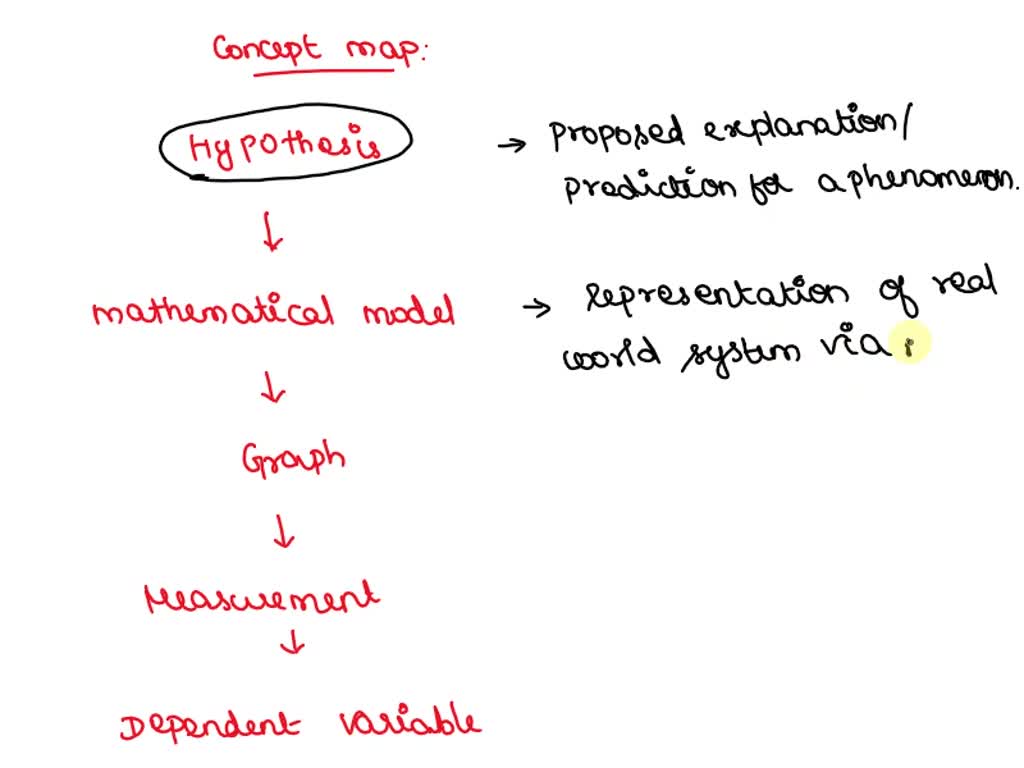 Concept map:
Hypothesis
→ Proposed explanation/
prediction for a phenomenon.
↓
mathematical model
→ Representation of real
world system via
↓
Graph
↓
Measurement
↓
Dependent variable